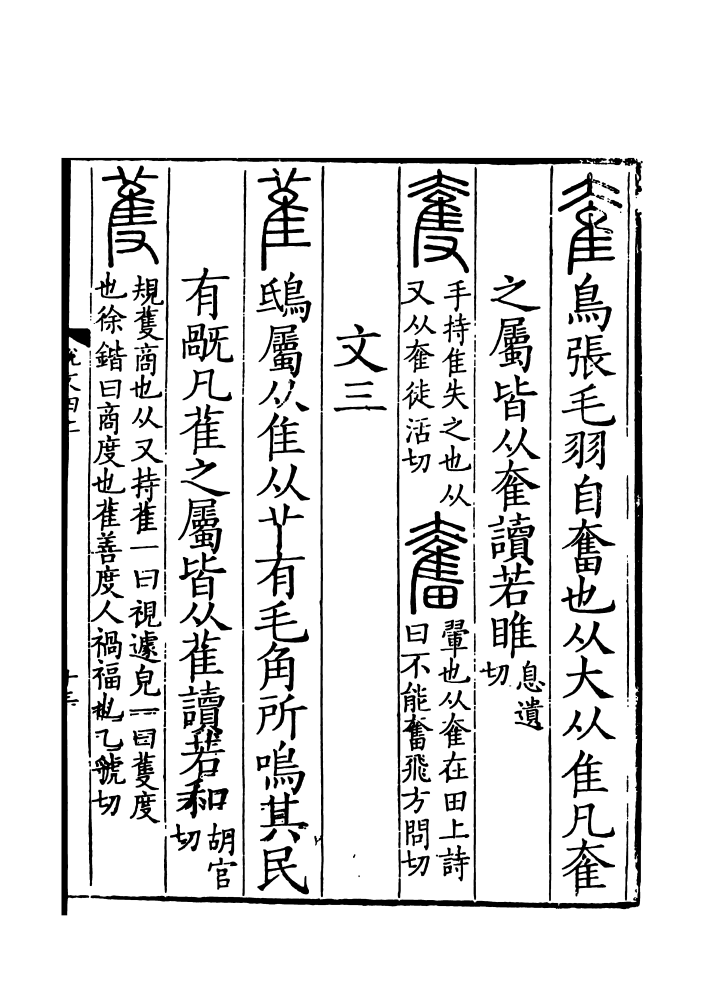 奞鳥張毛羽自奮也从大从隹凡奞
之屬皆从奞讀若睢息遺切
奪手持隹失之也从又从奞徒活切奮翬也从奞在田上詩曰不能奮飛方問切
文三
雈鴟屬从隹从𦫳有毛角所鳴其民
有旤凡雈之屬皆从雈讀若和胡官切
蒦規蒦商也从又持雈一曰視遽皃一曰蒦度也徐鍇曰商度也雈善度人禍福也乙虢切